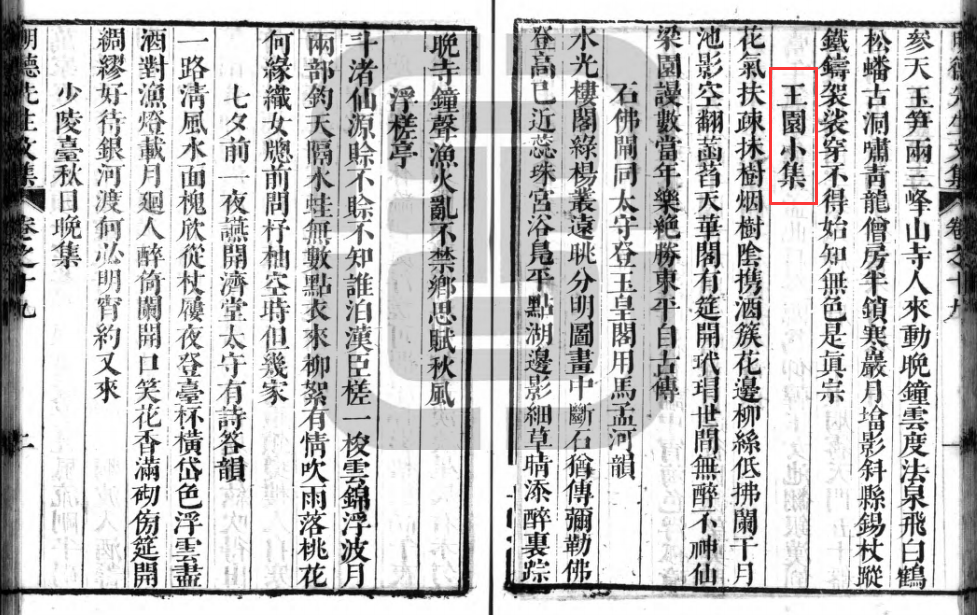 明德先生文集 卷之十九 一
參天玉笋兩三峰山寺人來動晚鐘雲度法泉飛白鶴
松蟠古洞嘯青龍僧房半鎖寒巖月墖影斜縣錫杖蹤
鐵鑄袈裟穿不得始知無色是眞宗
王園小集
花氣扶疎抹樹烟樹陰携酒簇花邊柳絲低拂闌干月
池影空翻菡萏天華閣有筵開玳瑁世間無醉不神仙
梁園謾數當年樂絶勝東平自古傳
石佛閘同太守登玉皇閣用馬孟河韻
水光樓閣綠楊叢遠眺分明圖畫中斷石猶傳彌勒佛
登高已近蕊珠宮浴鳧平點湖邊影細草晴添醉裏踪
晚寺鐘聲漁火亂不禁鄉思賦秋風
浮槎亭
斗渚仙源賒不賒不知誰泊漢臣槎一梭雲錦浮波月
兩部鈞天隔水蛙無數點衣來柳絮有情吹雨落桃花
何緣織女牕前問杼柚空時但幾家
七夕前一夜讌開濟堂太守有詩答韻
一路清風水面槐欣從杖屨夜登臺杯橫岱色浮雲盡
酒對漁燈載月廻人醉倚闌開口笑花香滿砌傍筵開
綢繆好待銀河渡何必明宵約又來
少陵臺秋日晚集
明德先生文集 卷之十九 二